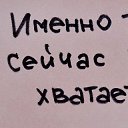 Именно -
сейчас
хватает